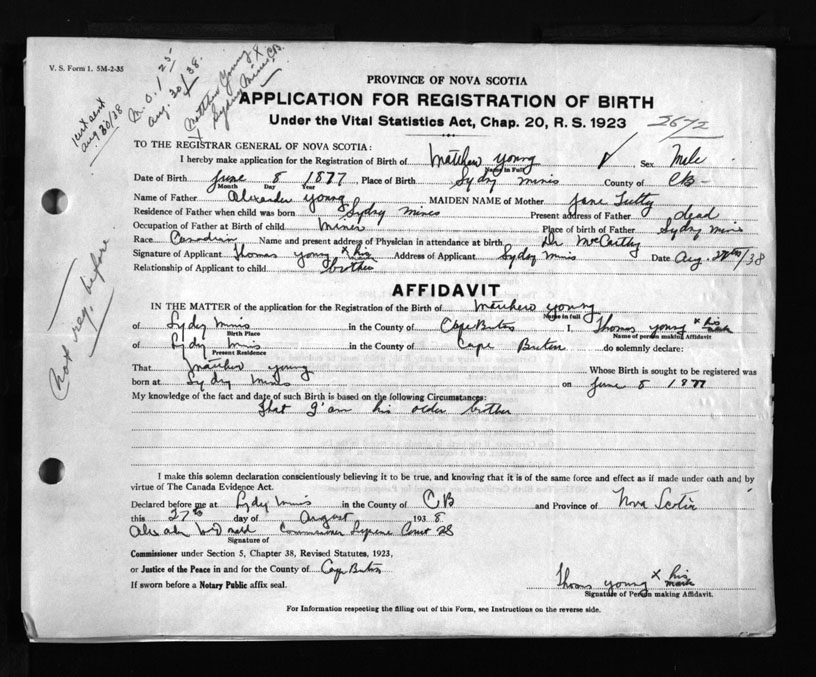 V. S. Form 1. 5M-2-35
M.O. 1.25
Aug. 30/38.
Matthew Young X
Sydney Mines, C.B.
Aug 30/38
Not reg. before
PROVINCE OF NOVA SCOTIA
APPLICATION FOR REGISTRATION OF BIRTH
Under the Vital Statistics Act, Chap. 20, R. S. 1923
2672
TO THE REGISTRAR GENERAL OF NOVA SCOTIA:
I hereby make application for the Registration of Birth of Matthew Young Sex Male
Name in Full
Date of Birth June 8 1877, Place of Birth Sydny mines County of CB-
Month Day Year
Name of Father Alexander Young MAIDEN NAME of Mother Jane Tutty
Residence of Father when child was born Sydny mines Present address of Father dead
Occupation of Father at Birth of child miner Place of birth of Father Sydny mines
Race Canadian Name and present address of Physician in attendance at birth Dr McCarthy
Signature of Applicant Thomas young x his Address of Applicant Sydny mines Date Aug. 27th/38
Relationship of Applicant to child brother
AFFIDAVIT
IN THE MATTER of the application for the Registration of the Birth of Matthew young
Name in full
of Sydny Mines in the County of Cape Breton I, Thomas young x his mark
Birth Place Name of person making Affidavit
of Sydny Mines in the County of Cape Breton do solemnly declare:
Present Residence
That Matthew young Whose Birth is sought to be registered was
born at Sydny Mines on June 8 1877
My knowledge of the fact and date of such Birth is based on the following Circumstances:
That I am his older brother
I make this solemn declaration conscientiously believing it to be true, and knowing that it is of the same force and effect as if made under oath and by
virtue of The Canada Evidence Act.
Declared before me at Sydny Mines in the County of CB and Province of Nova Scotia
this 27th day of August 1938
Commissioner Supreme Court
Signature of
Commissioner under Section 5, Chapter 38, Revised Statutes, 1923,
or Justice of the Peace in and for the County of Cape Breton
If sworn before a Notary Public affix seal.
Thomas young x his mark
Signature of Person making Affidavit.
For Information respecting the filling out of this Form, see Instructions on the reverse side.